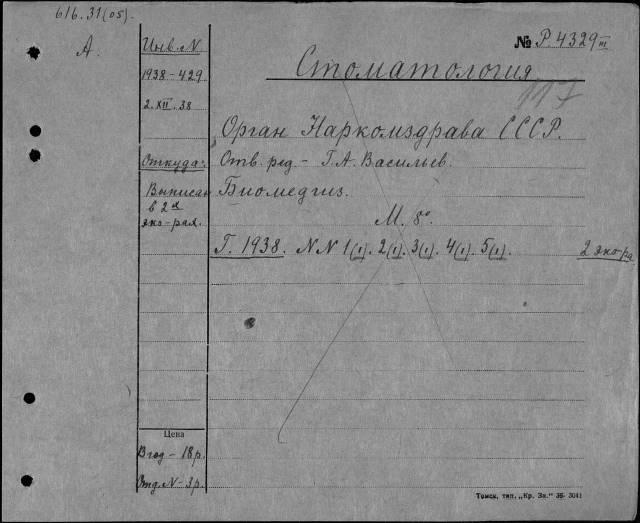 616.31(05).
А.
№ Р. 4329 III
Инв. N
1938-429
2. XII. 38
Откуда:
Выписан
в 2х
экз-рах.
Стоматология
117
Орган Наркомздрава СССР.
Отв. ред. - Г. А. Васильев.
Биомедгиз.
М. 8°.
Г. 1938. NN 1(1). 2(1). 3(1). 4(1). 5(1). 2 экз-ра
Цена
В год - 18 р.
Отд. N - 3 р.
Томск, тип. „Кр. Зн." 36- 3041